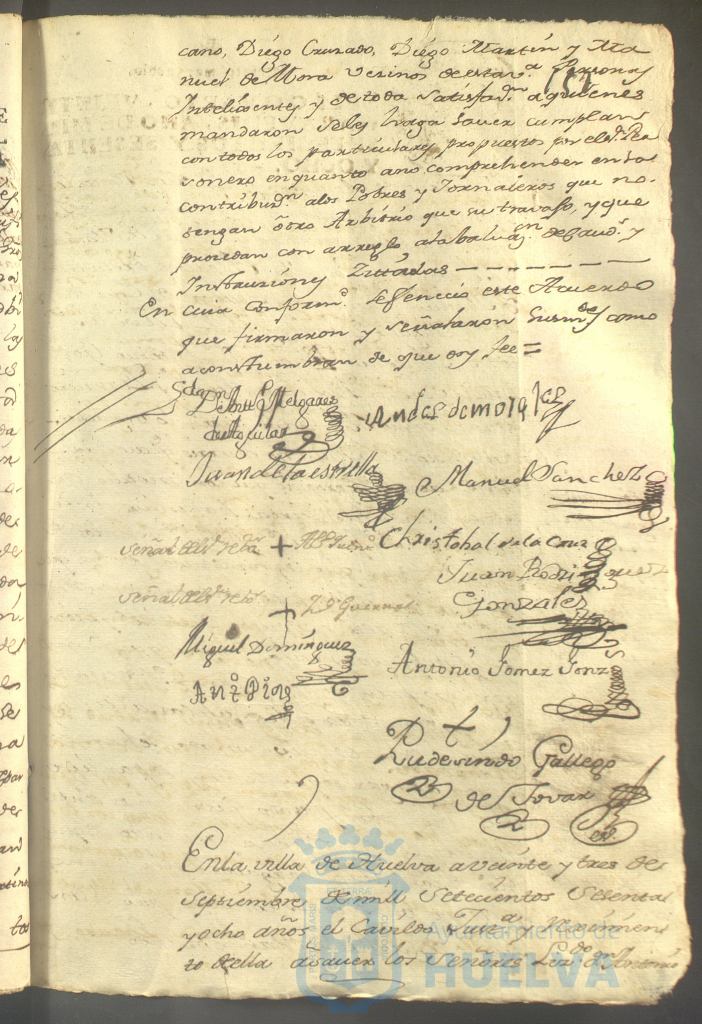 cano, Diego Cruzado, Diego Martin y Ma
nuel de Mora vezinos de esta v.ª Personas
Inteligentes y de toda satisfaz.n a quienes
mandaron se les haga saver cumplan
con todos los particulares propuestos por el d.
sonero en quanto a no comprehender en la
contribuz.n a los Pobres y Jornaleros que no
tengan ôtro Arbitrio que su travajo, y que
procedan con arreglo a la
Instruziones Zittadas
En cuia conform.d se fenecio este Acuerdo
que firmaron y señalaron sus m.des como
acostumbran de que doy fee =
Melgarexo
de Aguilar
Andes de morales
Juan de la estrella
Manuel Sanchez
Christobal de la Cruz
señal del +
Juan Rodriguez
Gonzales
señal del +
Miguel Dominguez
Antonio Gomez Gonz
Antº Diaz
Rudesindo Gallego
de Tovar
En la villa de Huelva a veinte y tres de
septiembre de mill setecientos sesenta
y ocho años el Cavildo Just.ª y Regimien
to de ella a saver los Señores Lizdo dn Antonio
Ayuntamiento de
HUELVA